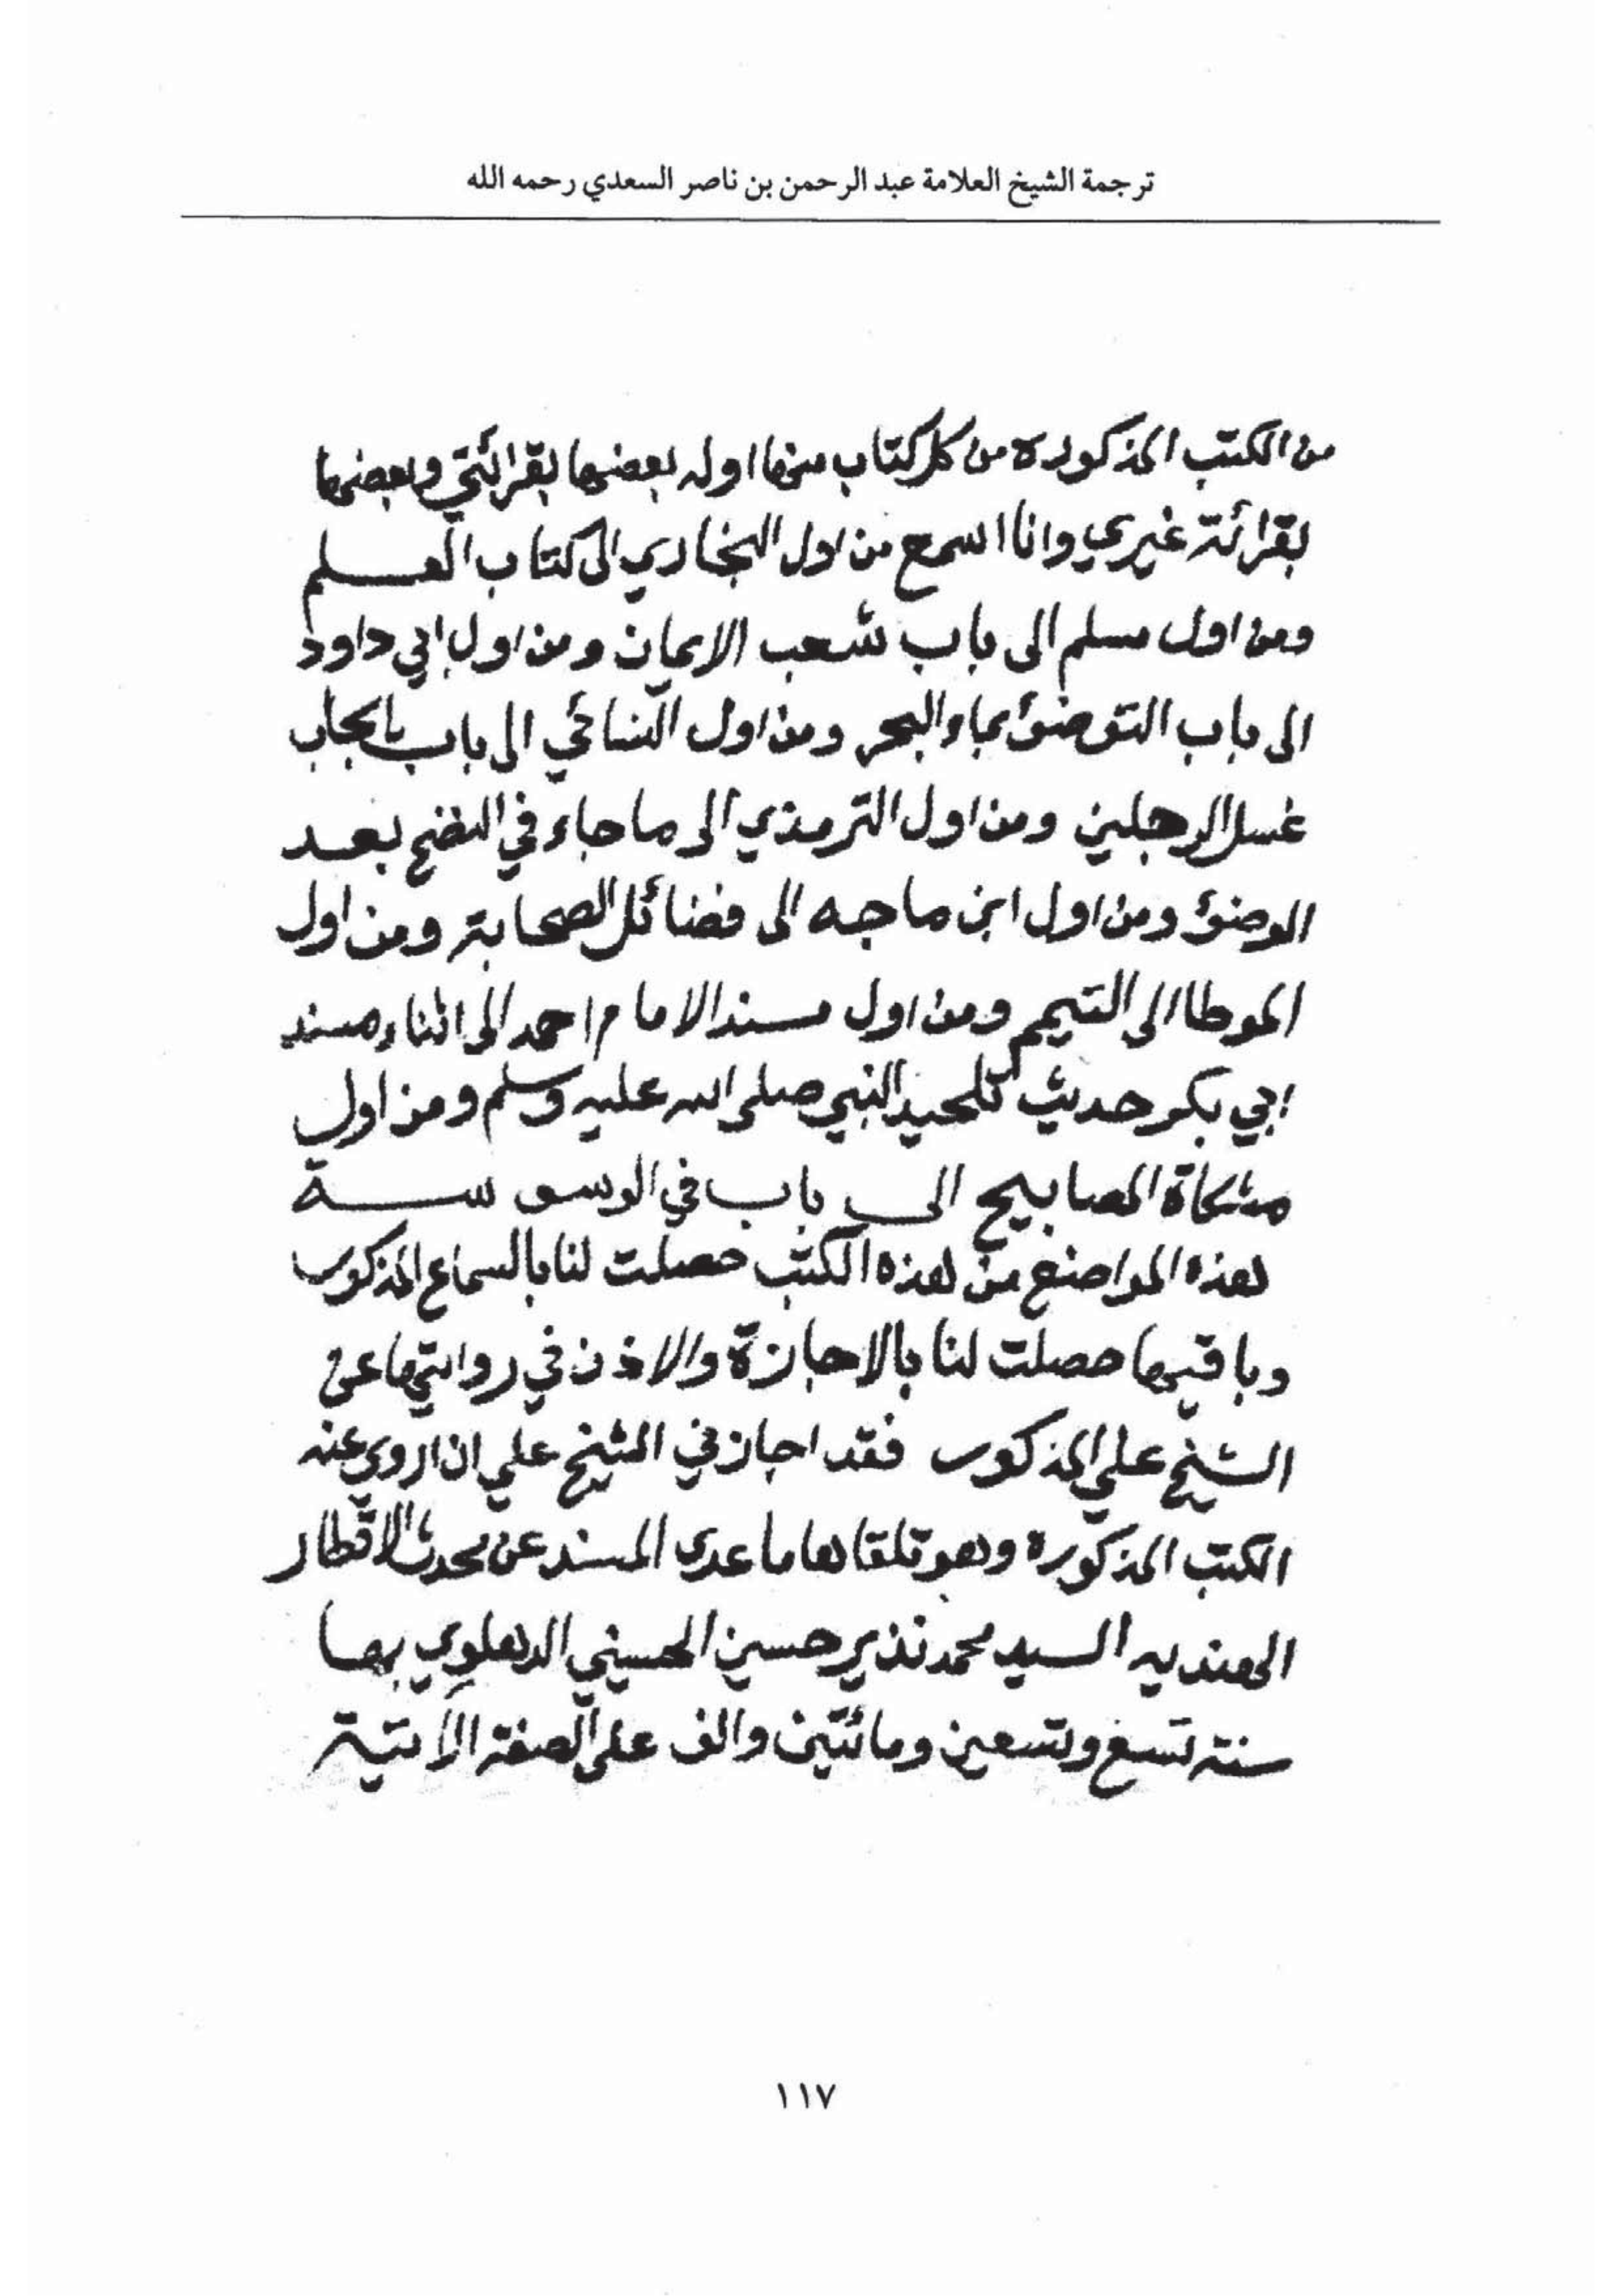 ترجمة الشيخ العلامة عبد الرحمن بن ناصر السعدي رحمه الله
من الكتب المذكورة من كل كتاب منها اوله بعضها بقرائتي وبعضها
بقرائة غيري وانا اسمع من اول البخاري الى كتاب العلم
ومن اول مسلم الى باب شعب الايمان ومن اول ابي داود
الى باب التوضئ بماء البحر ومن اول النسائي الى باب ايجاب
غسل الرجلين ومن اول الترمذي الى ما جاء في النضح بعد
الوضوء ومن اول ابن ماجه الى فضائل الصحابة ومن اول
الموطا الى التيمم ومن اول مسند الامام احمد الى اثناء مسند
ابي بكر حديث تلحيد النبي صلى الله عليه وسلم ومن اول
مشكاة المصابيح الى باب في الوسوسة
هذه المواضع من هذه الكتب حصلت لنا بالسماع المذكور
وباقيها حصلت لنا بالاجازة والاذن في روايتها عن
الشيخ علي المذكور فقد اجازني الشيخ علي ان اروي عنه
الكتب المذكورة وهو تلقاها ما عدى المسند عن محدث الاقطار
الهنديه السيد محمد نذير حسين الحسيني الدهلوي بها
سنة تسع وتسعين ومائتين والف على الصفة الآتية
١١٧